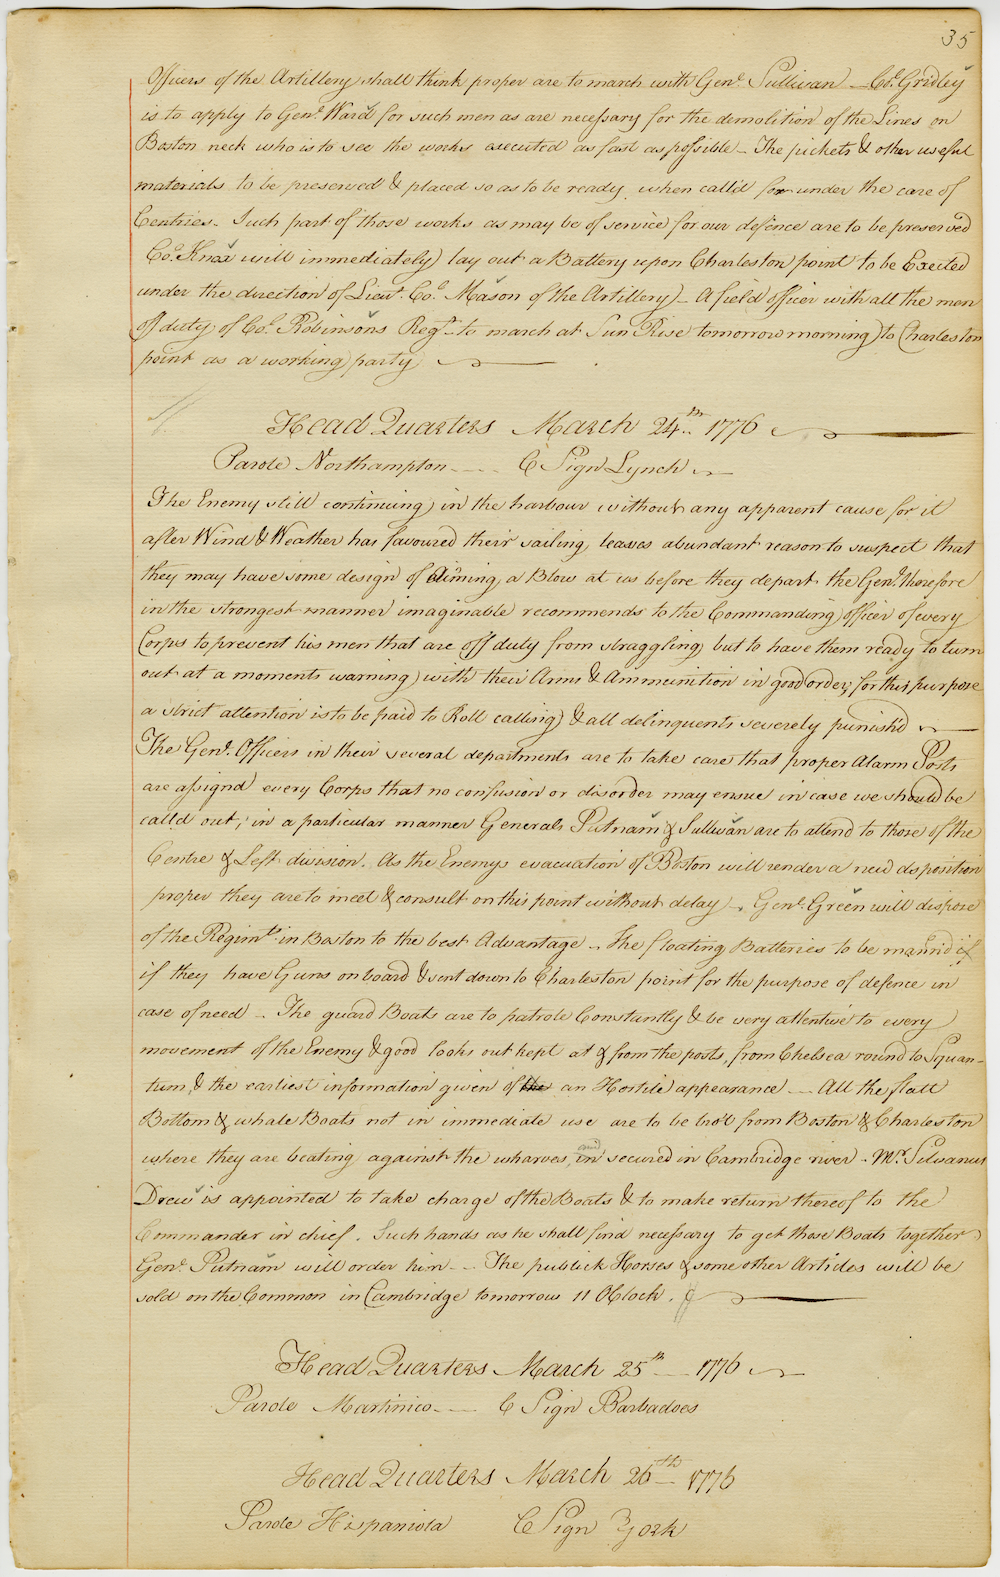 35
Officers of the Artillery shall think proper are to march with Genl. Sullivan – Col. Gridley
is to apply to Genl. Ward for such men as are necessary for the demolition of the Lines on
Boston neck who is to see the works executed as fast as possible – The pickets & other useful
materials to be preserved & placed so as to be ready when call'd for under the care of
Centries. Such part of those works as may be of service for our defence are to be preserved
Col. Knox will immediately lay out a Battery upon Charleston point to be Erected
under the direction of Lieut. Col. Mason of the Artillery – A field officer with all the men
off duty of Col. Robinsons Regt. to march at Sun Rise tomorrow morning to Charleston
point as a working party
Head Quarters March 24th 1776
Parole Northampton – – C Sign Lynch
The Enemy still continuing in the harbour without any apparent cause for it
after Wind & Weather has favoured their sailing, leaves abundant reason to suspect that
they may have some design of aiming a Blow at us before they depart the Genl. therefore
in the strongest manner imaginable recommends to the Commanding officer of every
Corps to prevent his men that are off duty from straggling but to have them ready to turn
out at a moments warning with their Arms & Ammunition in good order; for this purpose
a strict attention is to be paid to Roll calling & all delinquents severely punish'd
The Genl. Officers in their several departments are to take care that proper Alarm Posts
are assignd every Corps that no confusion or disorder may ensue in case we should be
calld out; in a particular manner Generals Putnam & Sullivan are to attend to those of the
Centre & Left division. As the Enemys evacuation of Boston will render a new disposition
proper they are to meet & consult on this point without delay – Genl. Green will dispose
of the Regimts. in Boston to the best Advantage – The floating Batteries to be mannd if
if they have Guns on board & sent down to Charleston point for the purpose of defence in
case of need – The guard Boats are to patrole Constantly & be very attentive to every
movement of the Enemy & good looks out kept at & from the posts, from Chelsea round to Squan-
tum, & the earliest information given of the an Hostile appearance – All the flatt
Bottom & whale Boats not in immediate use are to be bro't from Boston & Charleston
where they are beating against the wharves, and in secured in Cambridge river – Mr. Silvanus
Drew is appointed to take charge of the Boats & to make return thereof to the
Commander in chief. Such hands as he shall find necessary to get those Boats together
Genl. Putnam will order him – The publick Horses & some other Articles will be
sold on the Common in Cambridge tomorrow 11 OClock.
Head Quarters March 25th – 1776
Parole Martinico – – C Sign Barbadoes
Head Quarters March 26th 1776
Parole Hispaniola C Sign York